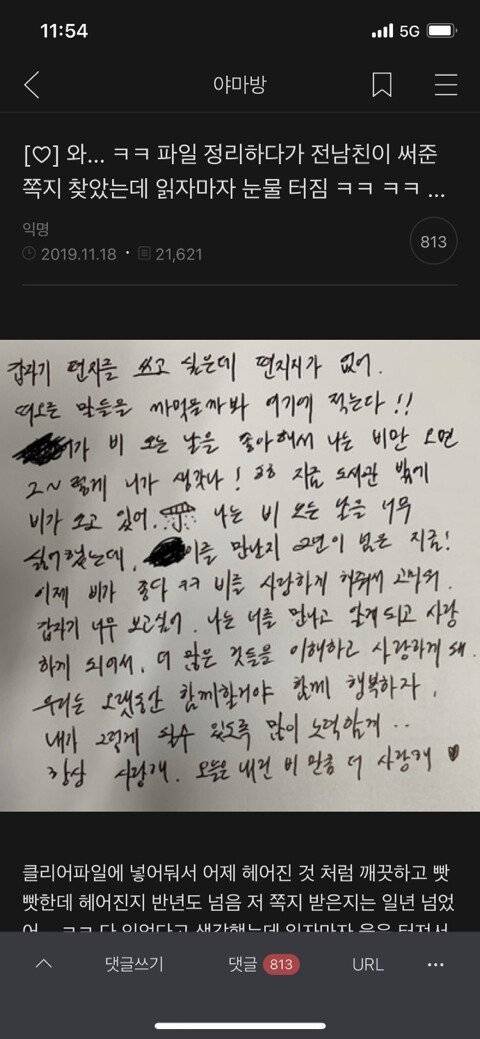 11:54
5G
야마방
[♡] 와... ㅋㅋ 파일 정리하다가 전남친이 써준
쪽지 찾았는데 읽자마자 눈물 터짐 ㅋㅋ ㅋㅋ ...
익명
813
2019.11.18 · 21,621
갑자기 편지를 쓰고 싶은데 편지지가 없어.
떠오른 말들을 까먹을까봐 여기에 적는다!!
가 비 오는 날을 좋아해서 나는 비만 오면
그~ 렇게 니가 생각나! ㅎㅎ 지금 도서관 밖에
비가 오고 있어. 나는 비 오는 날을 너무
싫어했는데, 이를 만난지 2년이 넘은 지금!
이제 비가 좋다 ㅋㅋ 비를 사랑하게 해줘서 고마워.
갑자기 너무 보고싶어. 나는 너를 만나고 알게되고 사랑
하게 되어서, 더 많은 것들을 이해하고 사랑하게 돼.
우리는 오랫동안 함께할거야 함께 행복하자,
내가 그렇게 될수 있도록 많이 노력할게..
항상 사랑해. 오늘은 내린 비 만큼 더 사랑해 ♥
클리어파일에 넣어둬서 어제 헤어진 것 처럼 깨끗하고 빳
빳한데 헤어진지 반년도 넘음 저 쪽지 받은지는 일년 넘었
어... ㅋㅋ 다 잊었다고 생각했는데 읽자마자 울음 터져서
댓글쓰기
댓글 813
URL